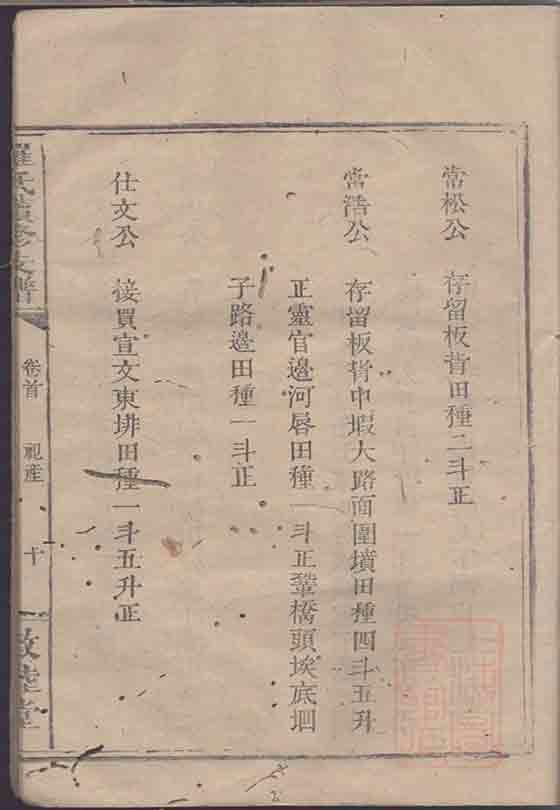 常松公　存留板背田種二斗正
常浩公　存留板背中塅大路面圍墳田種四斗五升
正靈官邊河唇田種一斗正葦橋頭埃底垇
子路邊田種一斗正
仕文公　接買宣文東排田種一斗五升正
羅氏續修支譜
卷首　祀産　十
敦睦堂